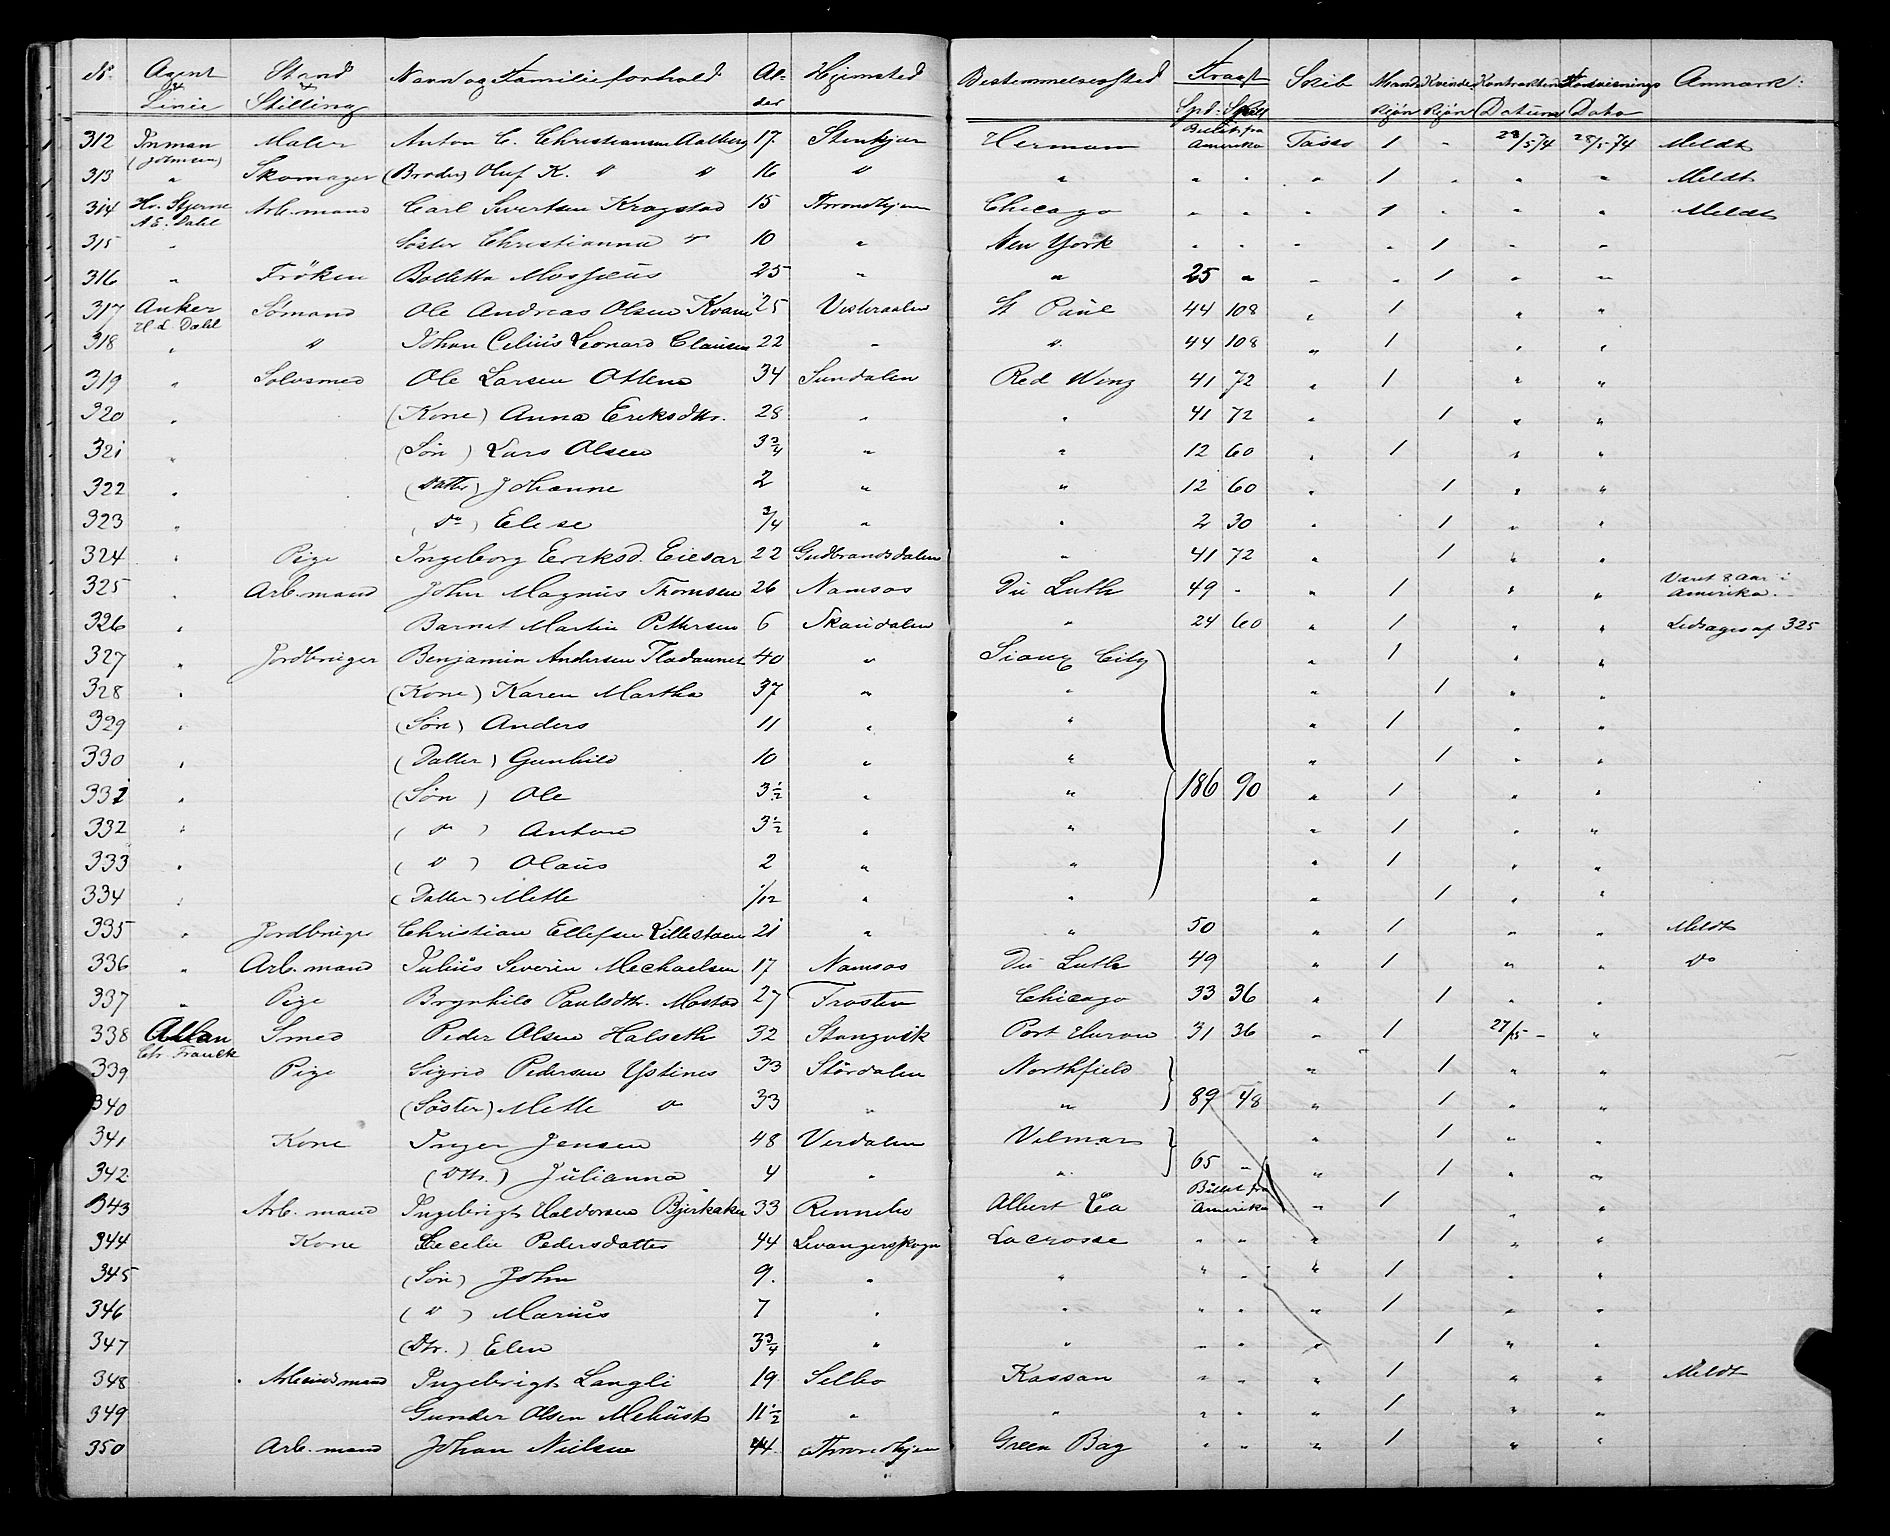 No. Agent & Linie Stand & Stilling Navn og Familieforhold Alder Hjemsted Bestemmelsessted Fragt Spd. Skill Skib Mandkjøn Kvindekjøn Kontraktens Datum Forevisnings Dato Anmærk:
312 Inman (Johnsen) Maler Anton C. Christiansen Aalberg 17 Stenkjær Herman Billet fra Amerika Tasso 1 " 28/5 74 28/5 74 Meldt
313 " Skomager (Broder) Oluf K. " " 16 " " " " " 1 " " " Meldt
314 Hv. Stjerne A. E. Dahl Arb. mand Carl Sivertsen Kragstad 15 Throndhjem Chicago " " " 1 " " " Meldt
315 " Søster Christianna " 10 " New York " " " " 1 " "
316 " Frøken Bolletta 25 " " 25 " " " 1 " "
317 Anker H. L. Dahl Sømand Ole Andreas Olsen Kvam 25 Vesteraalen St Paul 44 108 " 1 " "
318 " " Johan Celius Leonard Clausen 22 " " 44 108 " 1 " "
319 " Sølvsmed Ole Larsen Ottem 34 Sundalen Red Wing 41 72 " 1 " "
320 " (Kone) Anna Eriksdtr. 28 " " 41 72 " 1 " "
321 " (Søn) Lars Olsen 3 3/4 " " 12 60 " 1 " "
322 " (Datter) Johanne 2 " " 12 60 " 1 " "
323 " (do) Elise 3/4 " " 2 30 " 1 " "
324 " Pige Ingeborg Eriksd. Eiesar 22 Gudbrandsdalen " 41 72 " 1 " "
325 " Arb. mand John Magnus Thomsen 26 Namsos Du Luth 49 - " 1 " " Været 8 Aar i Amerika.
326 " Barnet Martin Pettersen 6 Skaudalen " 24 60 " 1 " " Ledsages af 325
327 " Jordbruger Benjamin Andersen Fladaunet 40 " Sioux City " 1 " "
328 " (Kone) Karen Martha 37 " " " 1 " "
329 " (Søn) Anders 11 " " " 1 " "
330 " (Datter) Gunhild 10 " " " 1 " "
331 " (Søn) Ole 3 1/2 " " 186 90 " 1 " "
332 " (do) Anton 3 1/2 " " " 1 " "
333 " (") Olaus 2 " " " 1 " "
334 " (Datter) Mette 1/12 " " " 1 " "
335 " Jordbruger Christian Ellefsen Lillestøen 21 " " 50 " 1 " " Meldt
336 " Arb. mand Julius Severin Mechaelsen 17 Namsos Du Luth 49 " 1 " " do
337 " Pige Brynhild Paulsdtr. Mostad 27 Frosten Chicago 33 36 " 1 " "
338 Allan Chr. Franck Smed Peder Olsen Halseth 32 Stangvik Port Huron 31 36 " 1 27/5 - "
339 Pige Sigrid Pedersen Ystines 33 Stördalen Northfield " 1 " "
340 (Søster) Mette " 33 " " 89 48 " 1 " "
341 Kone Inger Jensen 48 Verdalen Velmar " 1 " "
342 (Dtr.) Julianna 4 " " 65 " " 1 " "
343 Arb. mand Ingebrigt Haldorsen Bjerkaker 33 Rennebo Albert Lea Billet fra Amerika " 1 " "
344 Kone Cecelie Pedersdatter 44 Levangerskogn Lacrosse " " " 1 " "
345 (Søn) John 9. " " " " " 1 " "
346 (") Marius 7 " " " " " 1 " "
347 (Dtr.) Elen 3 3/4 " " " " " 1 " "
348 Arbeidsmand Ingebrigt Langli 19 Selbo Kassan " " " 1 " " Meldt
349 Gunder Olsen 11 1/2 " " " " " 1 " "
350 Arb. mand Johan Nielsen 44 Throndhjem Green Bag " " " 1 " "